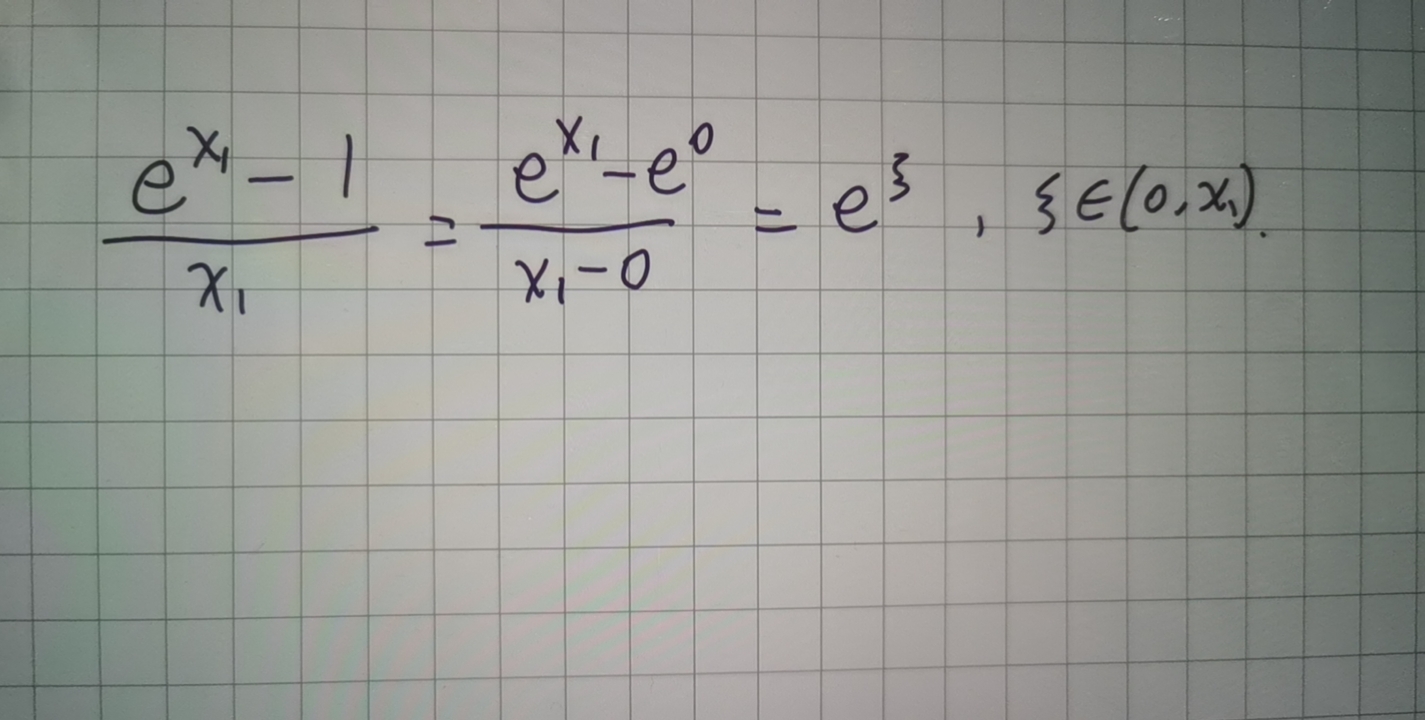 $\frac{e^{x_1} - 1}{x_1} = \frac{e^{x_1} - e^0}{x_1 - 0} = e^{\xi}, \xi \in (0, x_1).$